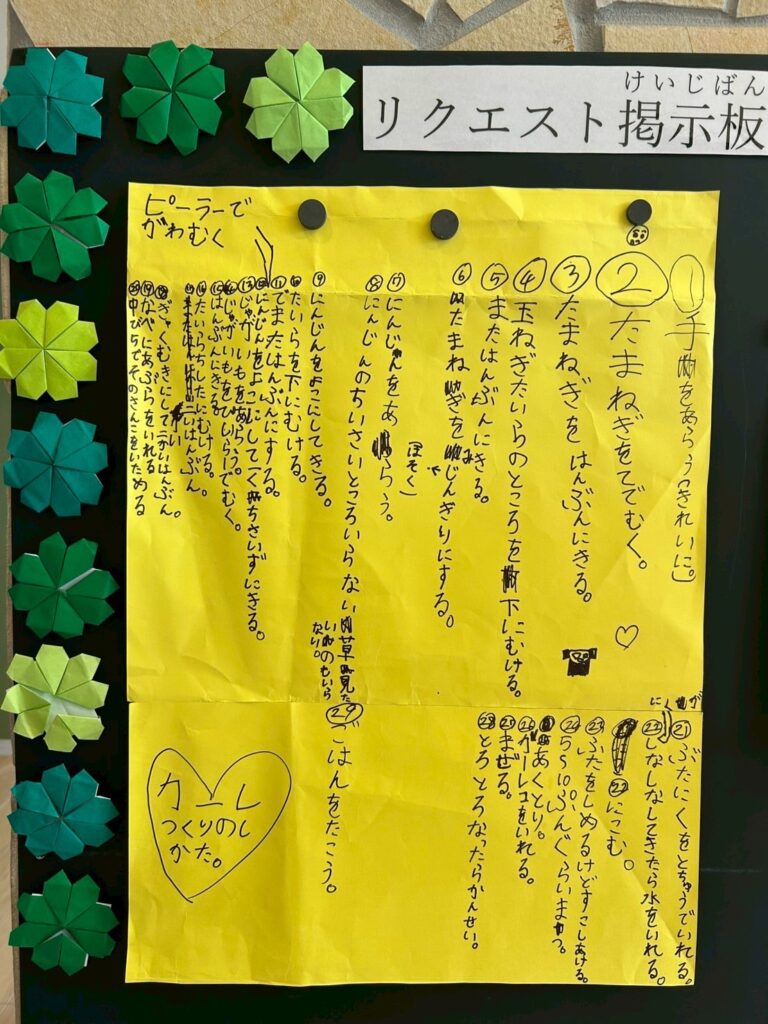 けいじばん
リクエスト掲示板
①手をあらう(きれいに。)
②たまねぎをてでむく。
③たまねぎをはんぶんにきる。
④玉ねぎたいらのところを下にむける。
⑤またはんぶんにきる。
⑥たまねぎをみじんぎりにする。
(ほそく)
⑦にんじんをあらう。
⑧にんじんのちいさいところいらない
⑨にんじんをよこにしてきる。
⑩たいらを下にむける。
⑪でまたはんぶんにする。
⑫にんじんをよこにして
⑬じゃがいもをあらう。
ピーラーで
がわむく
⑮はんぶんにきる。
⑯たいらちしたにむける。
⑱ぎゃくむきにして
⑲なべにあぶらをいれる
⑳中びちでそのさんこをいためる
㉑ぶたにくをとちゅうでいれる。
しなしなしてきたら水をいれる。
㉒にこむ。
㉓ふたをしめるけどすこしあける。
㉔5〜10ぷんぐらいまつ。
あくとり。
㉖カーレェをいれる。
まぜる。
㉘とろとろなったらかんせい。
㉙ごはんをたこう。
カーレ
つくりのし
かた。